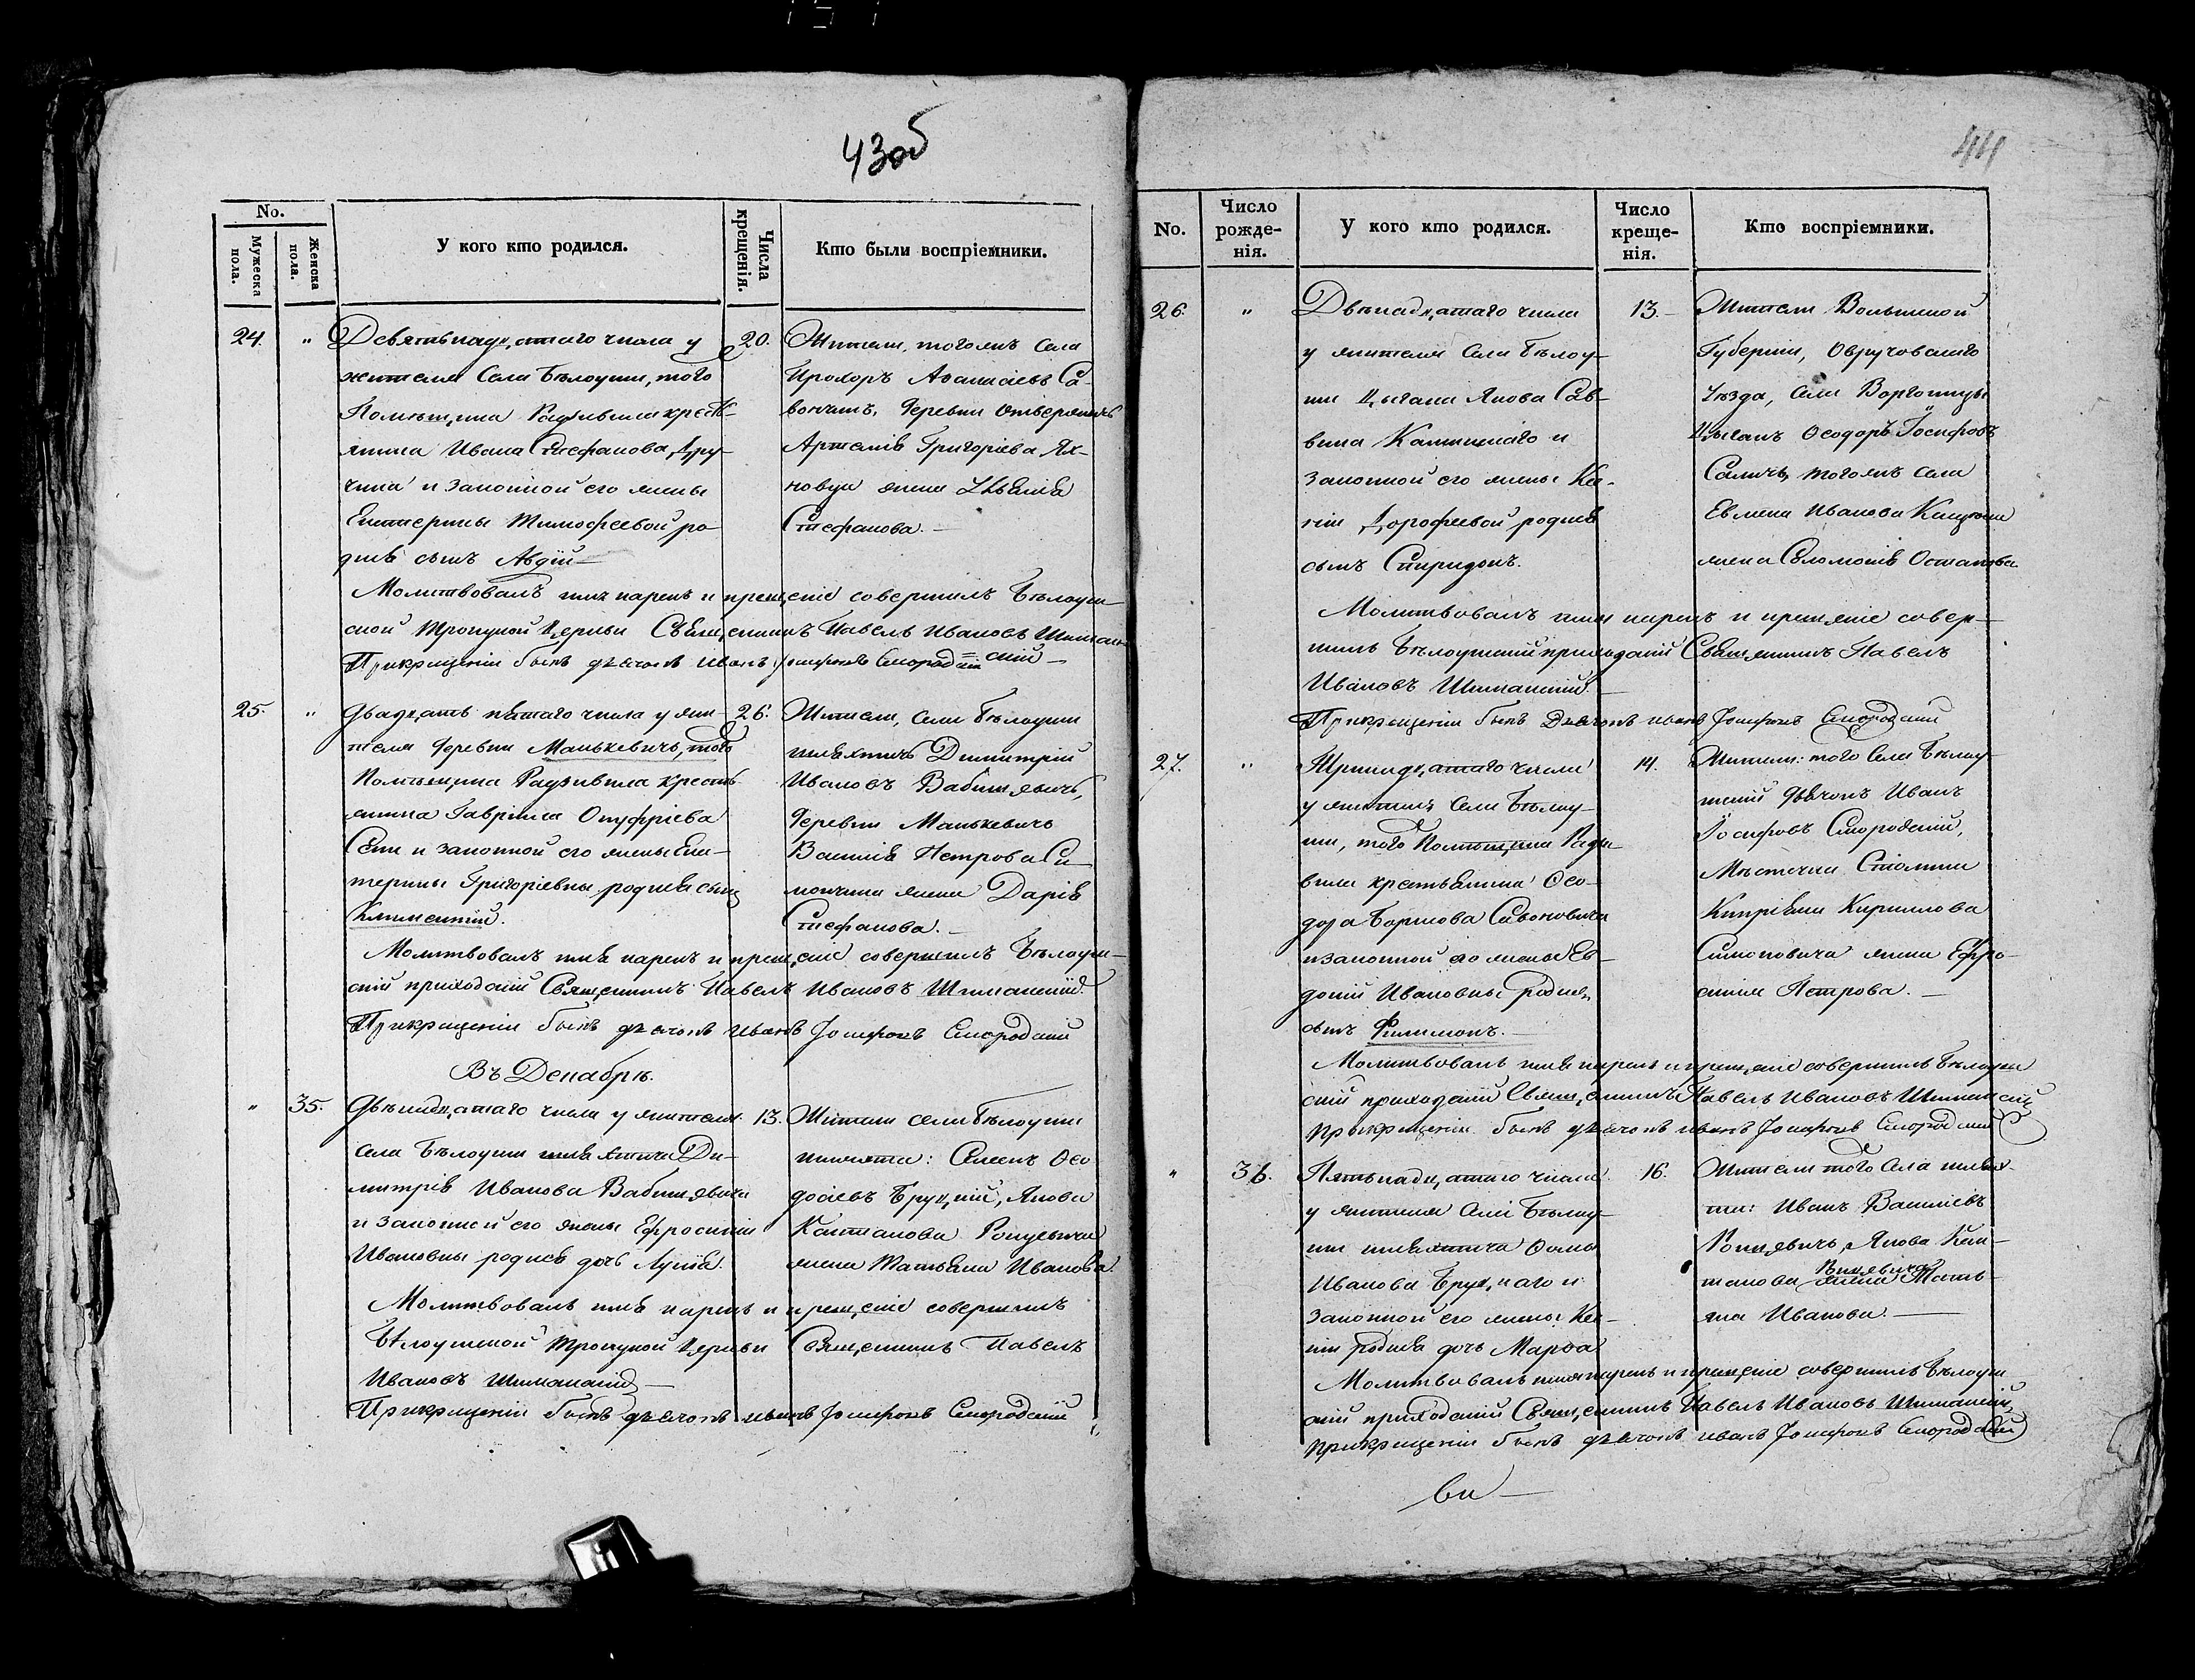 43об
No.
Мужеска пола.
Женска пола.
У кого кто родился.
Числа крещенія.
Кто были воспріемники.
24. " Девятьнадцатаго числа у
жителя Села Бѣлоуши, того
Помѣщика Радзивила крестъ-
янина Ивана Стефанова Дру-
чика и законной его жены
Екатерины Тимофеевой ро-
дился сынъ Авдій
20. Жители, тогожъ Села
Прохоръ Аѳанасіевъ Са-
Деревни
Артемія Григоріева Ях-
новца жена
Стефанова.
Молитвовалъ имя нарекъ и крещеніе совершилъ Бѣлоуш-
ской Троицкой Церкви Священникъ Павелъ Ивановъ
При крещеніи былъ дьячокъ Иванъ Іосифовъ Смородскій
25. " Двадцать пятаго числа у жи-
теля Деревни Манькевичъ, того
Помѣщика Радзивила кресть-
янина Гавріила Онуфріева
и законной его жены Ека-
терины Григоріевны родился сынъ
Климентій.
26. Жители, Села Бѣлоуши
шляхтичъ Димитрій
Ивановъ Вабищевичъ,
Деревни Манькевичъ
Василія Петрова Си-
жена Дарія
Стефанова.
Молитвовалъ имя нарекъ и крещеніе совершилъ Бѣлоуш-
скій приходскій Священникъ Павелъ Ивановъ Шиманскій.
При крещеніи былъ дьячокъ Иванъ Іосифовъ Смородскій
Въ Декабрѣ.
" 35. Двѣнадцатаго числа у жителя
Села Бѣлоуши шляхтича Ди-
митрія Иванова Вабищевича
и законной его жены Ефросиніи
Ивановны родися дочь
13. Жители села Бѣлоуши
шляхта: Семенъ Ѳео-
досіевъ Бруцкій, Якова
Капитанова
жена Татьяна Иванова.
Молитвовалъ имя нарекъ и крещеніе совершилъ
Бѣлоушской Троицкой Церкви Священникъ Павелъ
Ивановъ Шиманскій
При крещеніи былъ дьячокъ Иванъ Іосифовъ Смородскій
44
No.
Число рожде-
нія.
У кого кто родился.
Число креще-
нія.
Кто воспріемники.
26. " Двѣнадцатаго числа
у жителя Села Бѣлоу-
ши Цыгана Якова Сав-
вина и
законной его жены Ксе-
ніи Дорофеевой родися
сынъ Спиридонъ.
13. Жители Волынской
Губерніи, Овручовскаго
Уѣзда, Села
Цыганъ Ѳеодоръ Іосифовъ
тогожъ села
Иванова
жена Соломонія
Молитвовалъ имя нарекъ и крещеніе совер-
шилъ Бѣлоушскій приходскій Священникъ Павелъ
Ивановъ Шиманскій.
При крещеніи былъ Дьячокъ Иванъ Іосифовъ Смородскій
27. " Тринадцатаго числа
у жителя Села Бѣлоу-
ши, того Помѣщика Радзи-
вила крестьянина Ѳео-
дора Борисова Савоновича
и законной его жены Ев-
докіи Ивановны родися
сынъ Филимонъ.
14. Жители: того Села Бѣлоу-
шскій Дьячокъ Иванъ
Іосифовъ Смородскій,
Мѣстечка Столина
Кипріяна Кирилова
Симоновича жена Ефро-
синія Петрова.
Молитвовалъ имя нарекъ и крещеніе совершилъ Бѣлоуш-
скій приходскій Священникъ Павелъ Ивановъ Шиманскій
При крещеніи былъ дьячокъ Иванъ Іосифовъ Смородскій
" 36. Пятьнадцатаго числа
у жителя Села Бѣлоу-
ши шляхтича Ѳомы
Иванова Бруцкаго и
законной его жены Ксе-
ніи родися дочь Марѳа
16. Жители того Села шлях-
та: Иванъ Василіевъ
Якова Капи-
танова жена Татья-
на Иванова.
Молитвовалъ имя нарекъ и крещеніе совершилъ Бѣлоуш-
скій приходскій Священникъ Павелъ Ивановъ Шиманскій,
При крещеніи былъ дьячокъ Иванъ Іосифовъ Смородскій